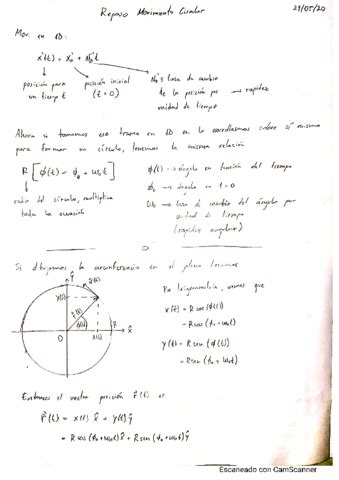 Repaso Movimiento Circular
27/05/20
Mov. en 1D:
x(t) = x₀ + v₀t
posición para un tiempo t
posición inicial (t = 0)
v₀: tasa de cambio de la posición por unidad de tiempo → rapidez
Ahora si tomamos ese tramo en 1D en lo enrollamos sobre sí mismo
para formar un círculo, tenemos la misma relación
R [ϕ(t) = ϕ₀ + ω₀t]
radio del círculo, multiplica toda la ecuación
ϕ(t) → ángulo en función del tiempo
ϕ₀ → ángulo en t = 0
ω₀ → tasa de cambio del ángulo por
unidad de tiempo
(rapidez angular)
Si dibujamos la circunferencia en el plano tenemos
ŷ
y(t)
r(t)
ϕ(t)
O
x(t)
R
x̂
Por trigonometría, vemos que
x(t) = R cos(ϕ(t))
= R cos(ϕ₀ + ω₀t)
y(t) = R sen(ϕ(t))
= R sen(ϕ₀ + ω₀t)
Entonces el vector posición r⃗(t) es
r⃗(t) = x(t) x̂ + y(t) ŷ
= R cos(ϕ₀ + ω₀t) x̂ + R sen(ϕ₀ + ω₀t) ŷ
Escaneado con CamScanner